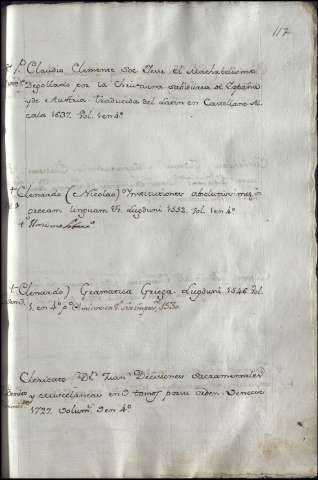 117
P. Claudio Clemente Soc. Iesu el Machabelismo
Degollado por la Christiana sabiduria de España
y de Austria. traducida del Latin en Castellano Al
cala 1637. Vol. 1 en 4º
Clenardo (Nicolas) Institutiones absolutissimæ in
grecam linguam &. Lugduni 1552. Vol. 1 en 4º
Clenardo) Gramatica Griega. Lugduni 1546 Vol.
1. en 4º
Clericato Dn. Juan Decisiones Sacramentales
y miscelaneas en 3 tomos por su orden Veneciis
1727. volum. 3 en 4º